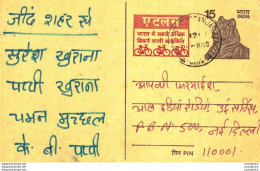 जींद शहर से
सुरेश खुराना
पप्पी खुराना
चमन मुच्छल
के. बी. पप्पी
एटलस
भारत में सबसे अधिक
बिकने वाली साईकिल
15
भारत INDIA
आपकी फरमाईश
आल इंडिया रेडियो उर्दू सर्विस,
P.B.N. 500, नई दिल्ली
पिन PIN 110001.